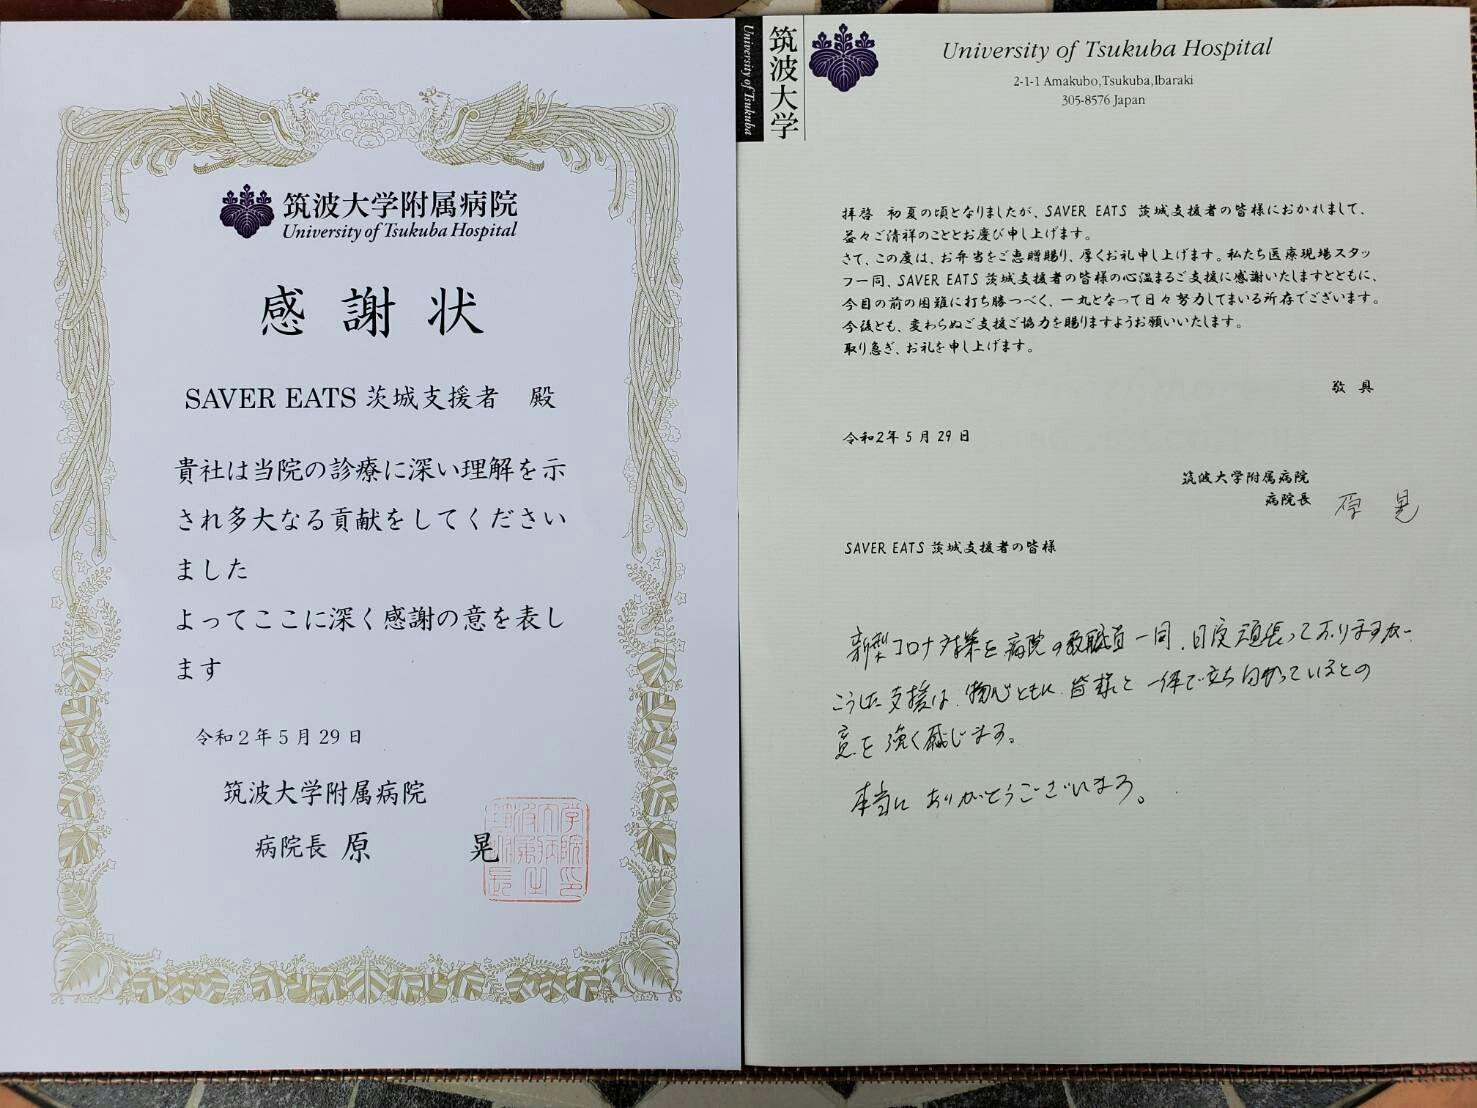 筑波大学附属病院
University of Tsukuba Hospital
感謝状
SAVER EATS 茨城支援者 殿
貴社は当院の診療に深い理解を示
され多大なる貢献をしてください
ました
よってここに深く感謝の意を表し
ます
令和2年5月29日
筑波大学附属病院
病院長 原 晃
筑波大学
University of Tsukuba
University of Tsukuba Hospital
2-1-1 Amakubo,Tsukuba,Ibaraki
305-8576 Japan
拝啓 初夏の頃となりましたが、SAVER EATS 茨城支援者の皆様におかれまして、
益々ご清祥のこととお慶び申し上げます。
さて、この度は、お弁当をご恵贈賜り、厚くお礼申し上げます。私たち医療現場スタッ
フ一同、SAVER EATS 茨城支援者の皆様の心温まるご支援に感謝いたしますとともに、
今目の前の困難に打ち勝つべく、一丸となって日々努力してまいる所存でございます。
今後とも、変わらぬご支援ご協力を賜りますようお願いいたします。
取り急ぎ、お礼を申し上げます。
敬具
令和2年5月29日
筑波大学附属病院
病院長 原 晃
SAVER EATS 茨城支援者の皆様
新型コロナ対策を病院の教職員一同、日夜頑張っておりますが、
こうした支援は、物心ともに、皆様と一体で立ち向かっているとの
意を強く感じます。
本当にありがとうございます。